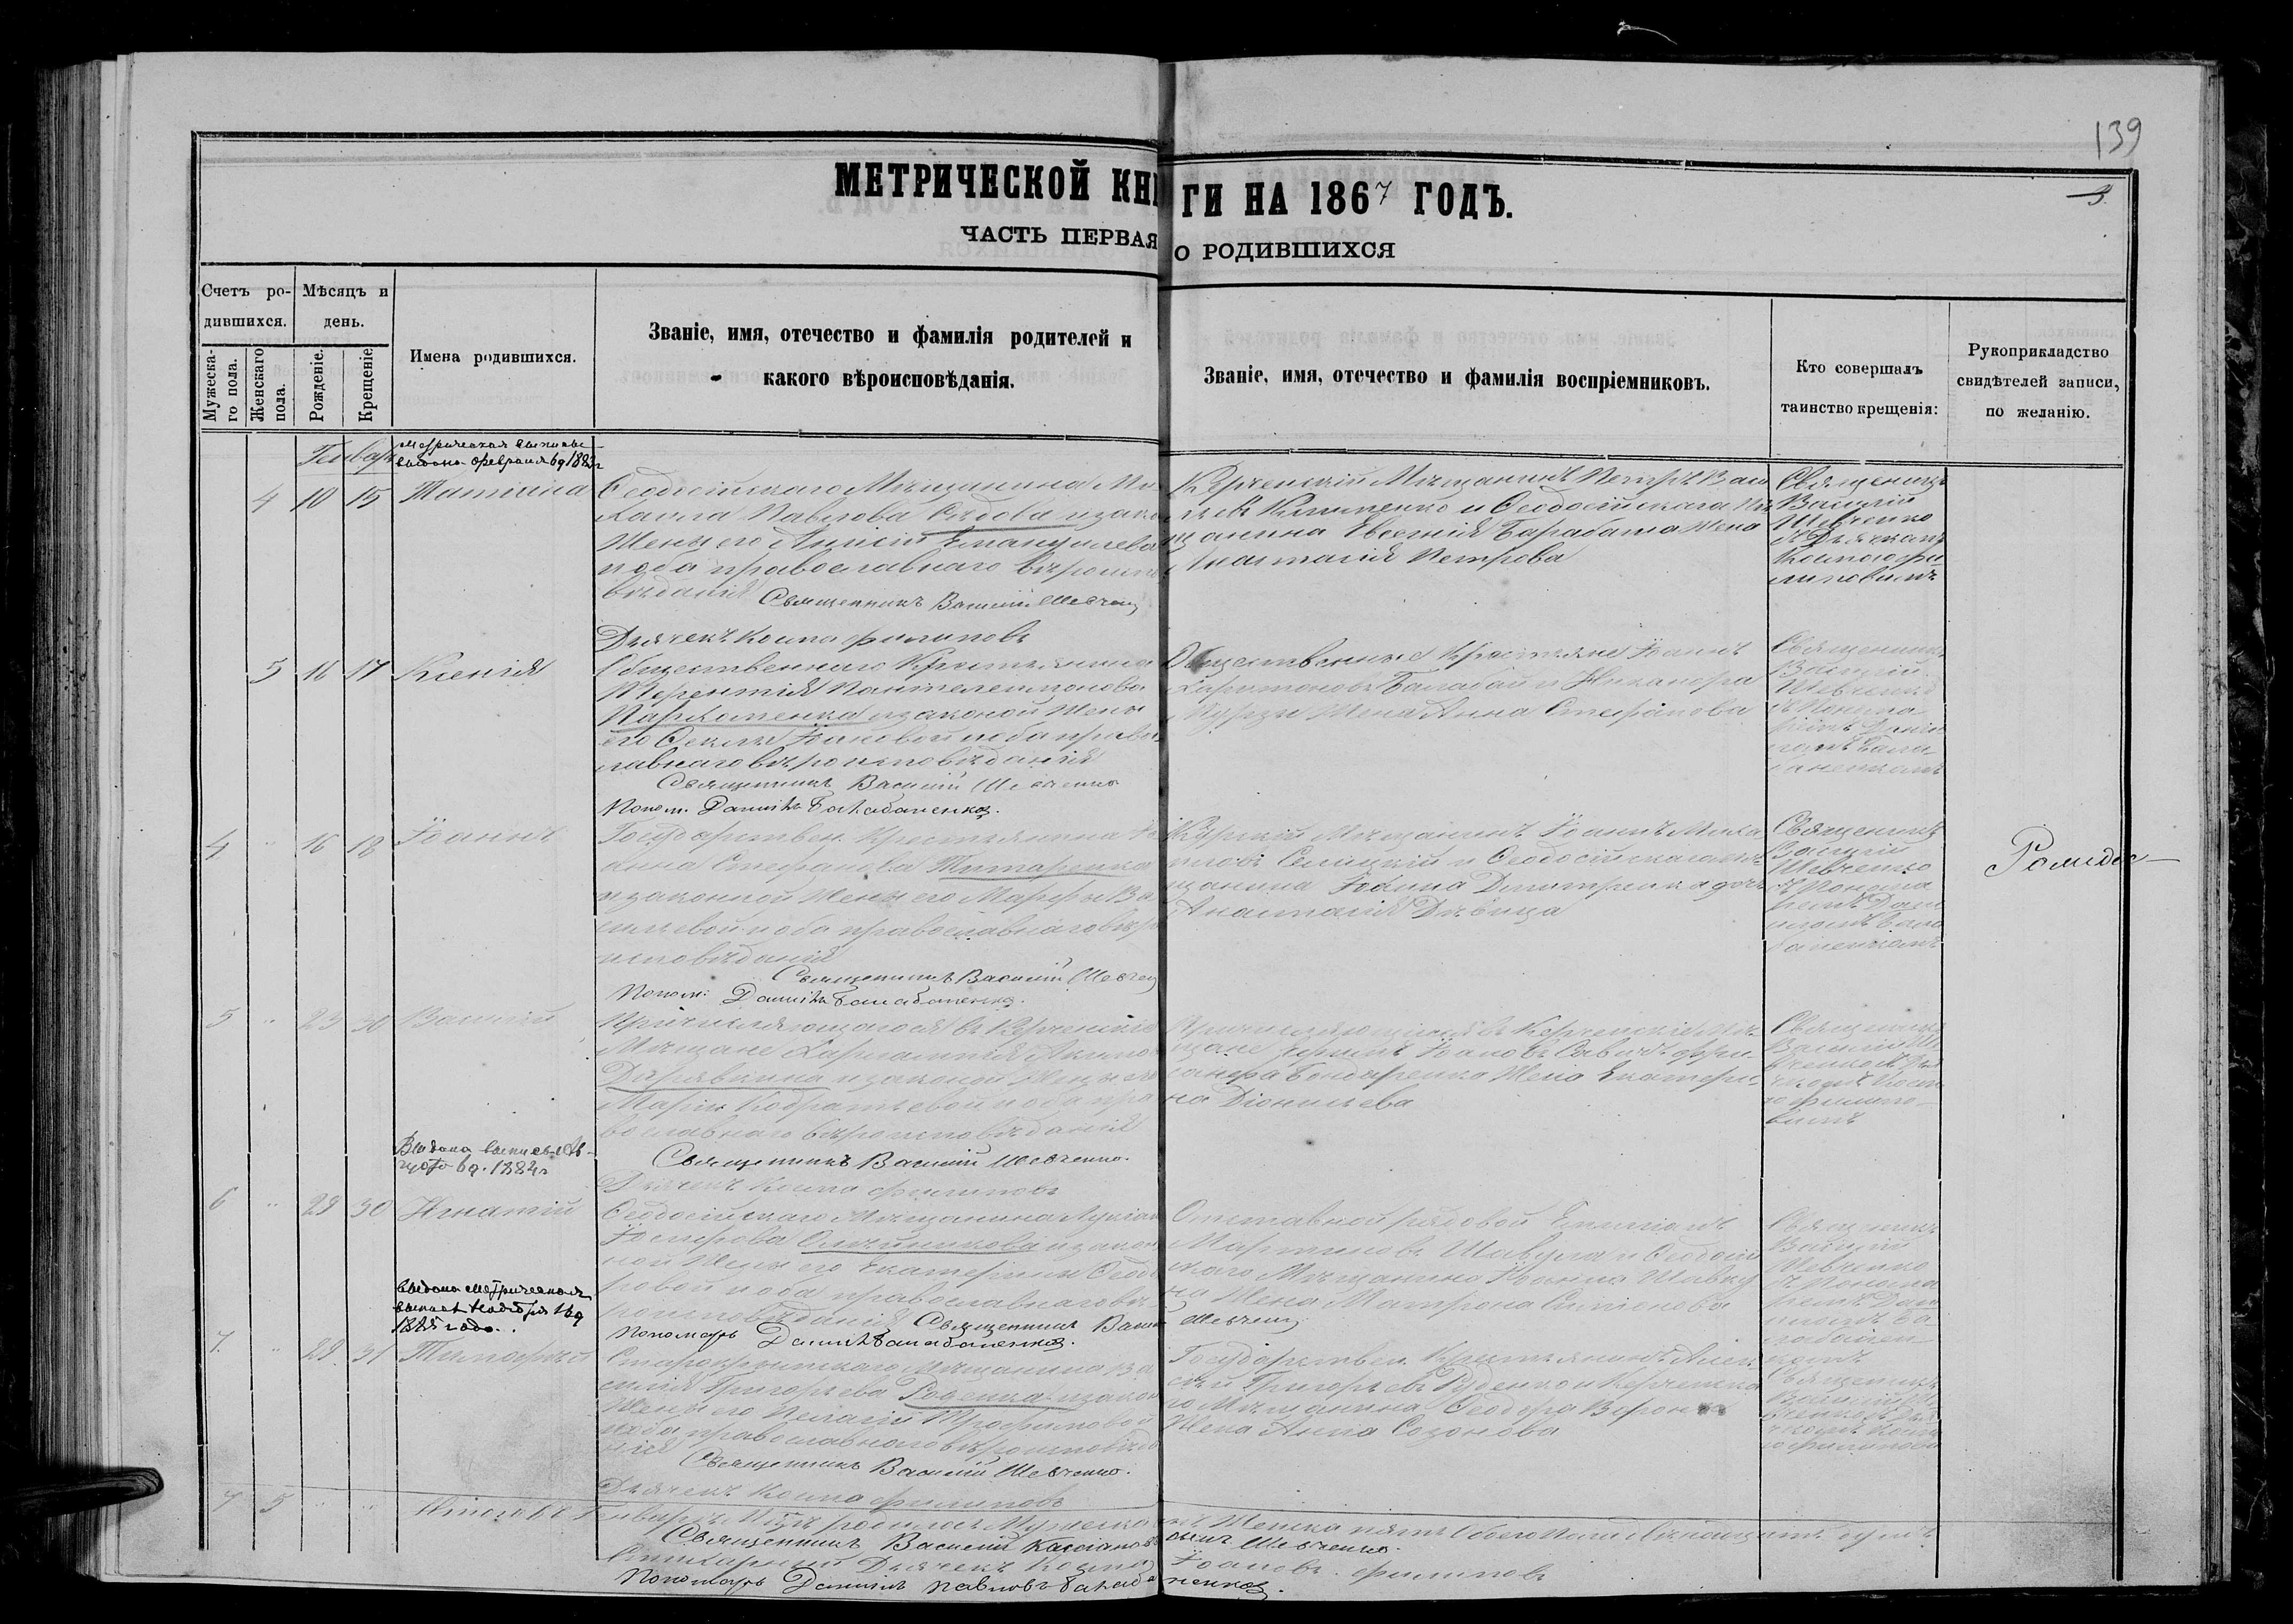 139
3
МЕТРИЧЕСКОЙ КНИГИ НА 1867 ГОДЪ.
ЧАСТЬ ПЕРВАЯ О РОДИВШИХСЯ
Счетъ ро-
дившихся.
Мужеска-
го пола.
Женскаго
пола.
Мѣсяцъ и
день.
Рожденіе.
Крещеніе
Имена родившихся.
Званіе, имя, отечество и фамилія родителей и
какого вѣроисповѣданія.
Званіе, имя, отечество и фамилія воспріемниковъ.
Кто совершалъ
таинство крещенія:
Рукоприкладство
свидѣтелей записи,
по желанію.
Генварь
Метрическая выпись
выдана февраля 6 д 1883 г
4 10 15 Татіана
Феодосійскаго Мѣщанина Ми
хаила Павлова Сѣдова и закон
жены его Анисіи Емануилево
поба православнаго вѣроиспо
вѣданія
Священникъ Василій Шевченко
Дьячекъ Косма Филиповъ
Керченскій Мѣщанинъ Петръ Васи
льевъ и Феодосійскаго Мѣ
щанина Евсенія Барабаша жена
Анастасія Петрова
Священникъ
Василій
Шевченко
съ Дьячкомъ
Космою Фи
липовымъ
5 16 17 Ксенія
Общественнаго Крестьянина
Терентія Пантелеимонова
Пархоменка и законой жены
его Феклы Іоановой оба право
славнаго вѣроисповѣданія
Священникъ Василій Шевченко
Поном. Даниїлъ Балабаненко.
Общественные Крестьяне Іоаннъ
Харитоновъ Балабай и Никанора
жена Анна Стефанова
Священникъ
Василій
Шевченко
съ Понома
ремъ Дани
ломъ Бала
баненкомъ
4 " 16 18 Іоаннъ
Государствен. Крестьянина Іо
анна Стефанова Титаренка
и законной жены его Марфы Ва
сильевой оба православнаго вѣро
исповѣданія
Священникъ Василій Шевченко
Поном: Даниїлъ Балабаненко.
Курскій Мѣщанинъ Іоаннъ Миха
иловъ Селицкій и Феодосійскаго Мѣ
щанина Іоанна Димитренка дочь
Анастасія Дѣвица
Священникъ
Василій
Шевченко
съ Понома
ремъ Дани
ломъ Бала
баненкомъ
5 " 23 30 Василій
Причисляющагося въ Керченскіе
Мѣщане Харлампія Акимо
Дѣрявкина и законой жены его
Маріи Кодратьевой оба пра
вославнаго вѣроисповѣданія
Священникъ Василій Шевченко.
Дьячекъ Косма Филиповъ
Причисляющійся въ Керченскіе Мѣ
щане Іоановъ Савичъ
Бондаренко жена Екатери
на Діонисьева
Священникъ
Василій Ше
вченко съ Дья
чкомъ Косм
ою Филипо
вымъ
Выдана выпись Ав
густа 6 д. 1882 г
6 " 29 30 Игнатій
Феодосійскаго Мѣщанина Лукіан
Іосифова Олѣйникова и закон
ной жены его Екатерины Феодо
ровой оба православнаго вѣ
роисповѣданія Священникъ Василій Шевченко
Пономарь Даниїлъ Балабаненко.
Отставной рядовой
Мартиновъ Шавула и Феодосій
скаго Мѣщанина Іоанна Шавку
на жена Матрона Симеонова
Священникъ
Василій
Шевченко
съ Понома
ремъ Дан
иломъ Ба
лабанен
комъ
Выдана Метрическая
выпись Ноября 16 д
1885 года.
7. " 29 31 Тимофѣй
Старокрымскаго Мѣщанина Ва
силія Григорьева и закон
жены его Пелагіи Трофимовой
оба православнаго вѣроисповѣда
нія
Священникъ Василій Шевченко.
Дьячекъ Косма Филиповъ
Государствен. Крестьянинъ Алек
сѣй Григорьевъ Руденко и Керченска
го Мѣщанина Феодора Ворон
жена Анна Созонова
Священникъ
Василій Ше
вченко съ Дья
чкомъ Косм
ою Филипов
7 5 " " Итого въ Генварѣ М-цѣ родилося Мужеска женска пять обоего пола двѣнадцать душъ
Священникъ Василій Шевченко.
Стихарный Дьячекъ Косма Іоановъ Филиповъ
Пономарь Даниилъ Павловъ Балабаненко.